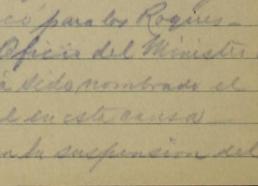 có para los Roques_
Oficio del Minister
a sido nombrado el
l en este causa
en la suspension del